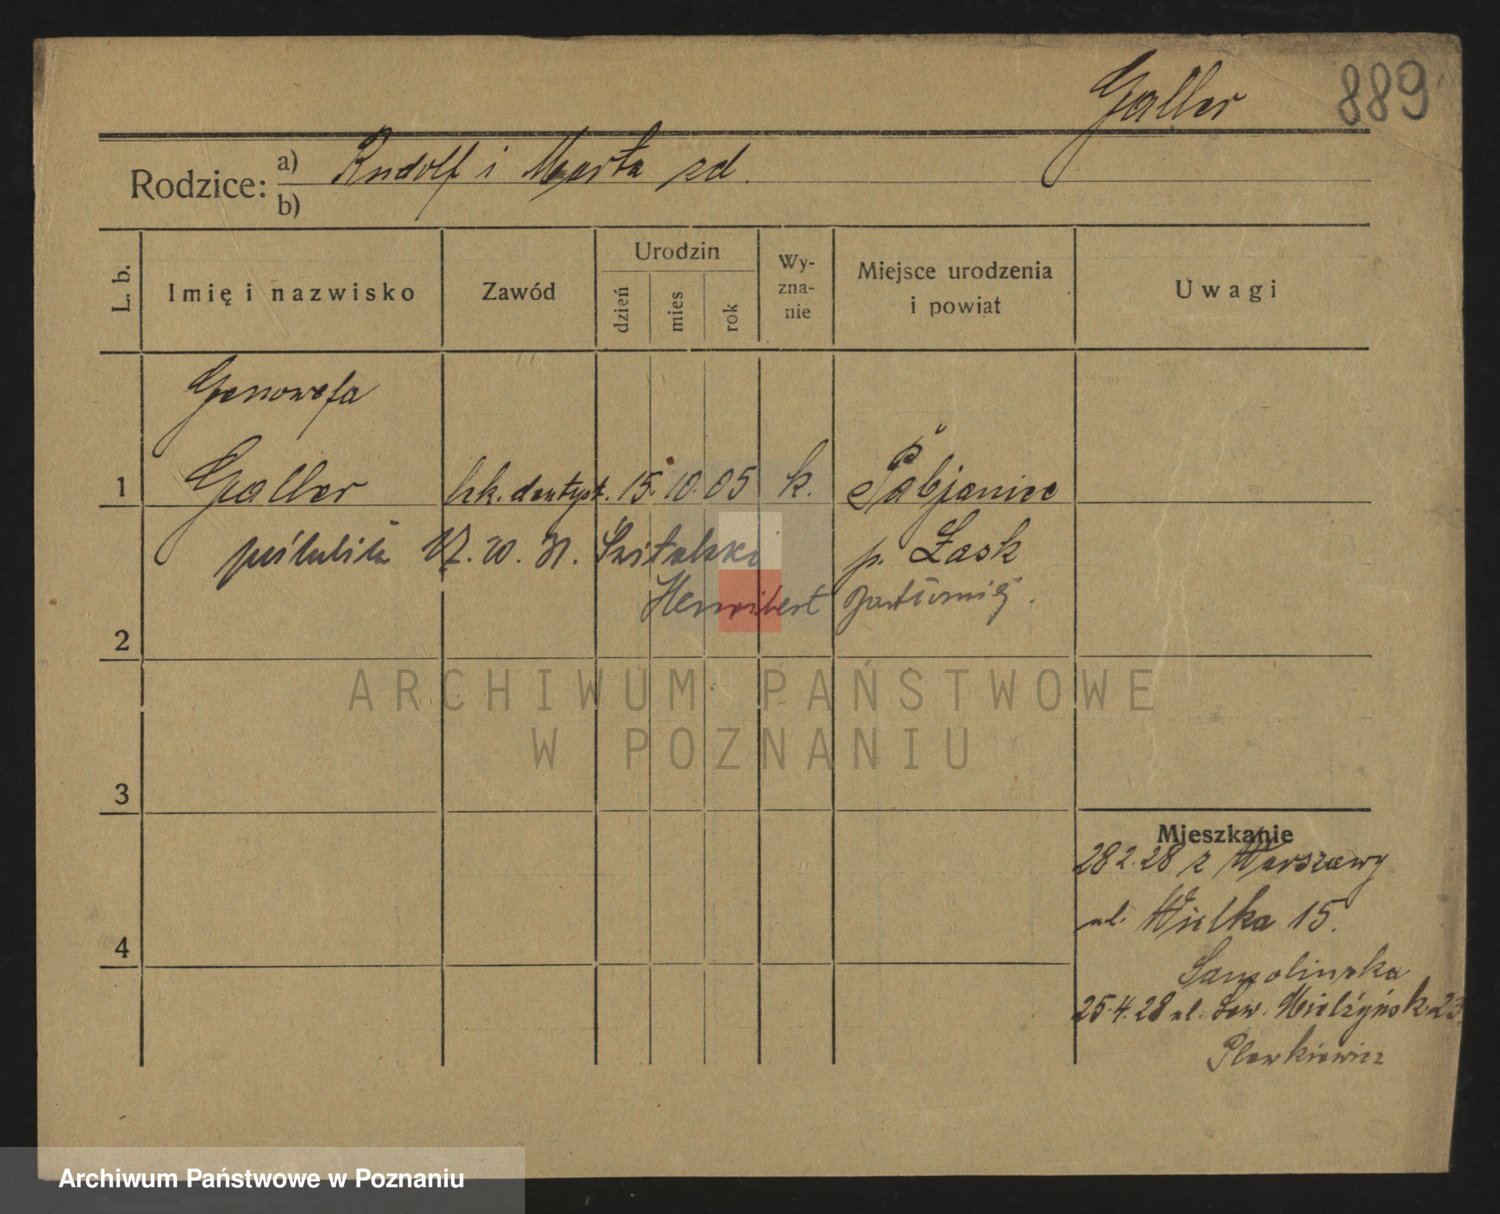 Galler 889
Rodzice: a) Rudolf i Marta zd.
b)
L. b. Imię i nazwisko Zawód Urodzin dzień mies rok Wy-zna-nie Miejsce urodzenia i powiat Uwagi
Genowefa
1 Galler lek. dentyst. 15. 10. 05 k. Pabjanice
poślubiła 17. 10. 31. Szitalski p. Łask
Heribert
2
ARCHIWUM PAŃSTWOWE
W POZNANIU
3
Mieszkanie
28 2. 28 z Warszawy
ul. Wielka 15.
4
Samolińska
25. 4. 28 ul. Sew. Mielżyńsk. 23
Plewkiewicz
Archiwum Państwowe w Poznaniu